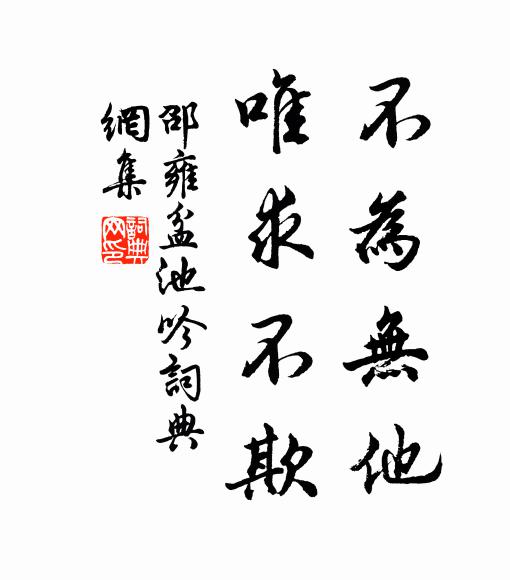 不為無他
唯求不欺
邵雍盆池吟詞典
網集
詞典
网印